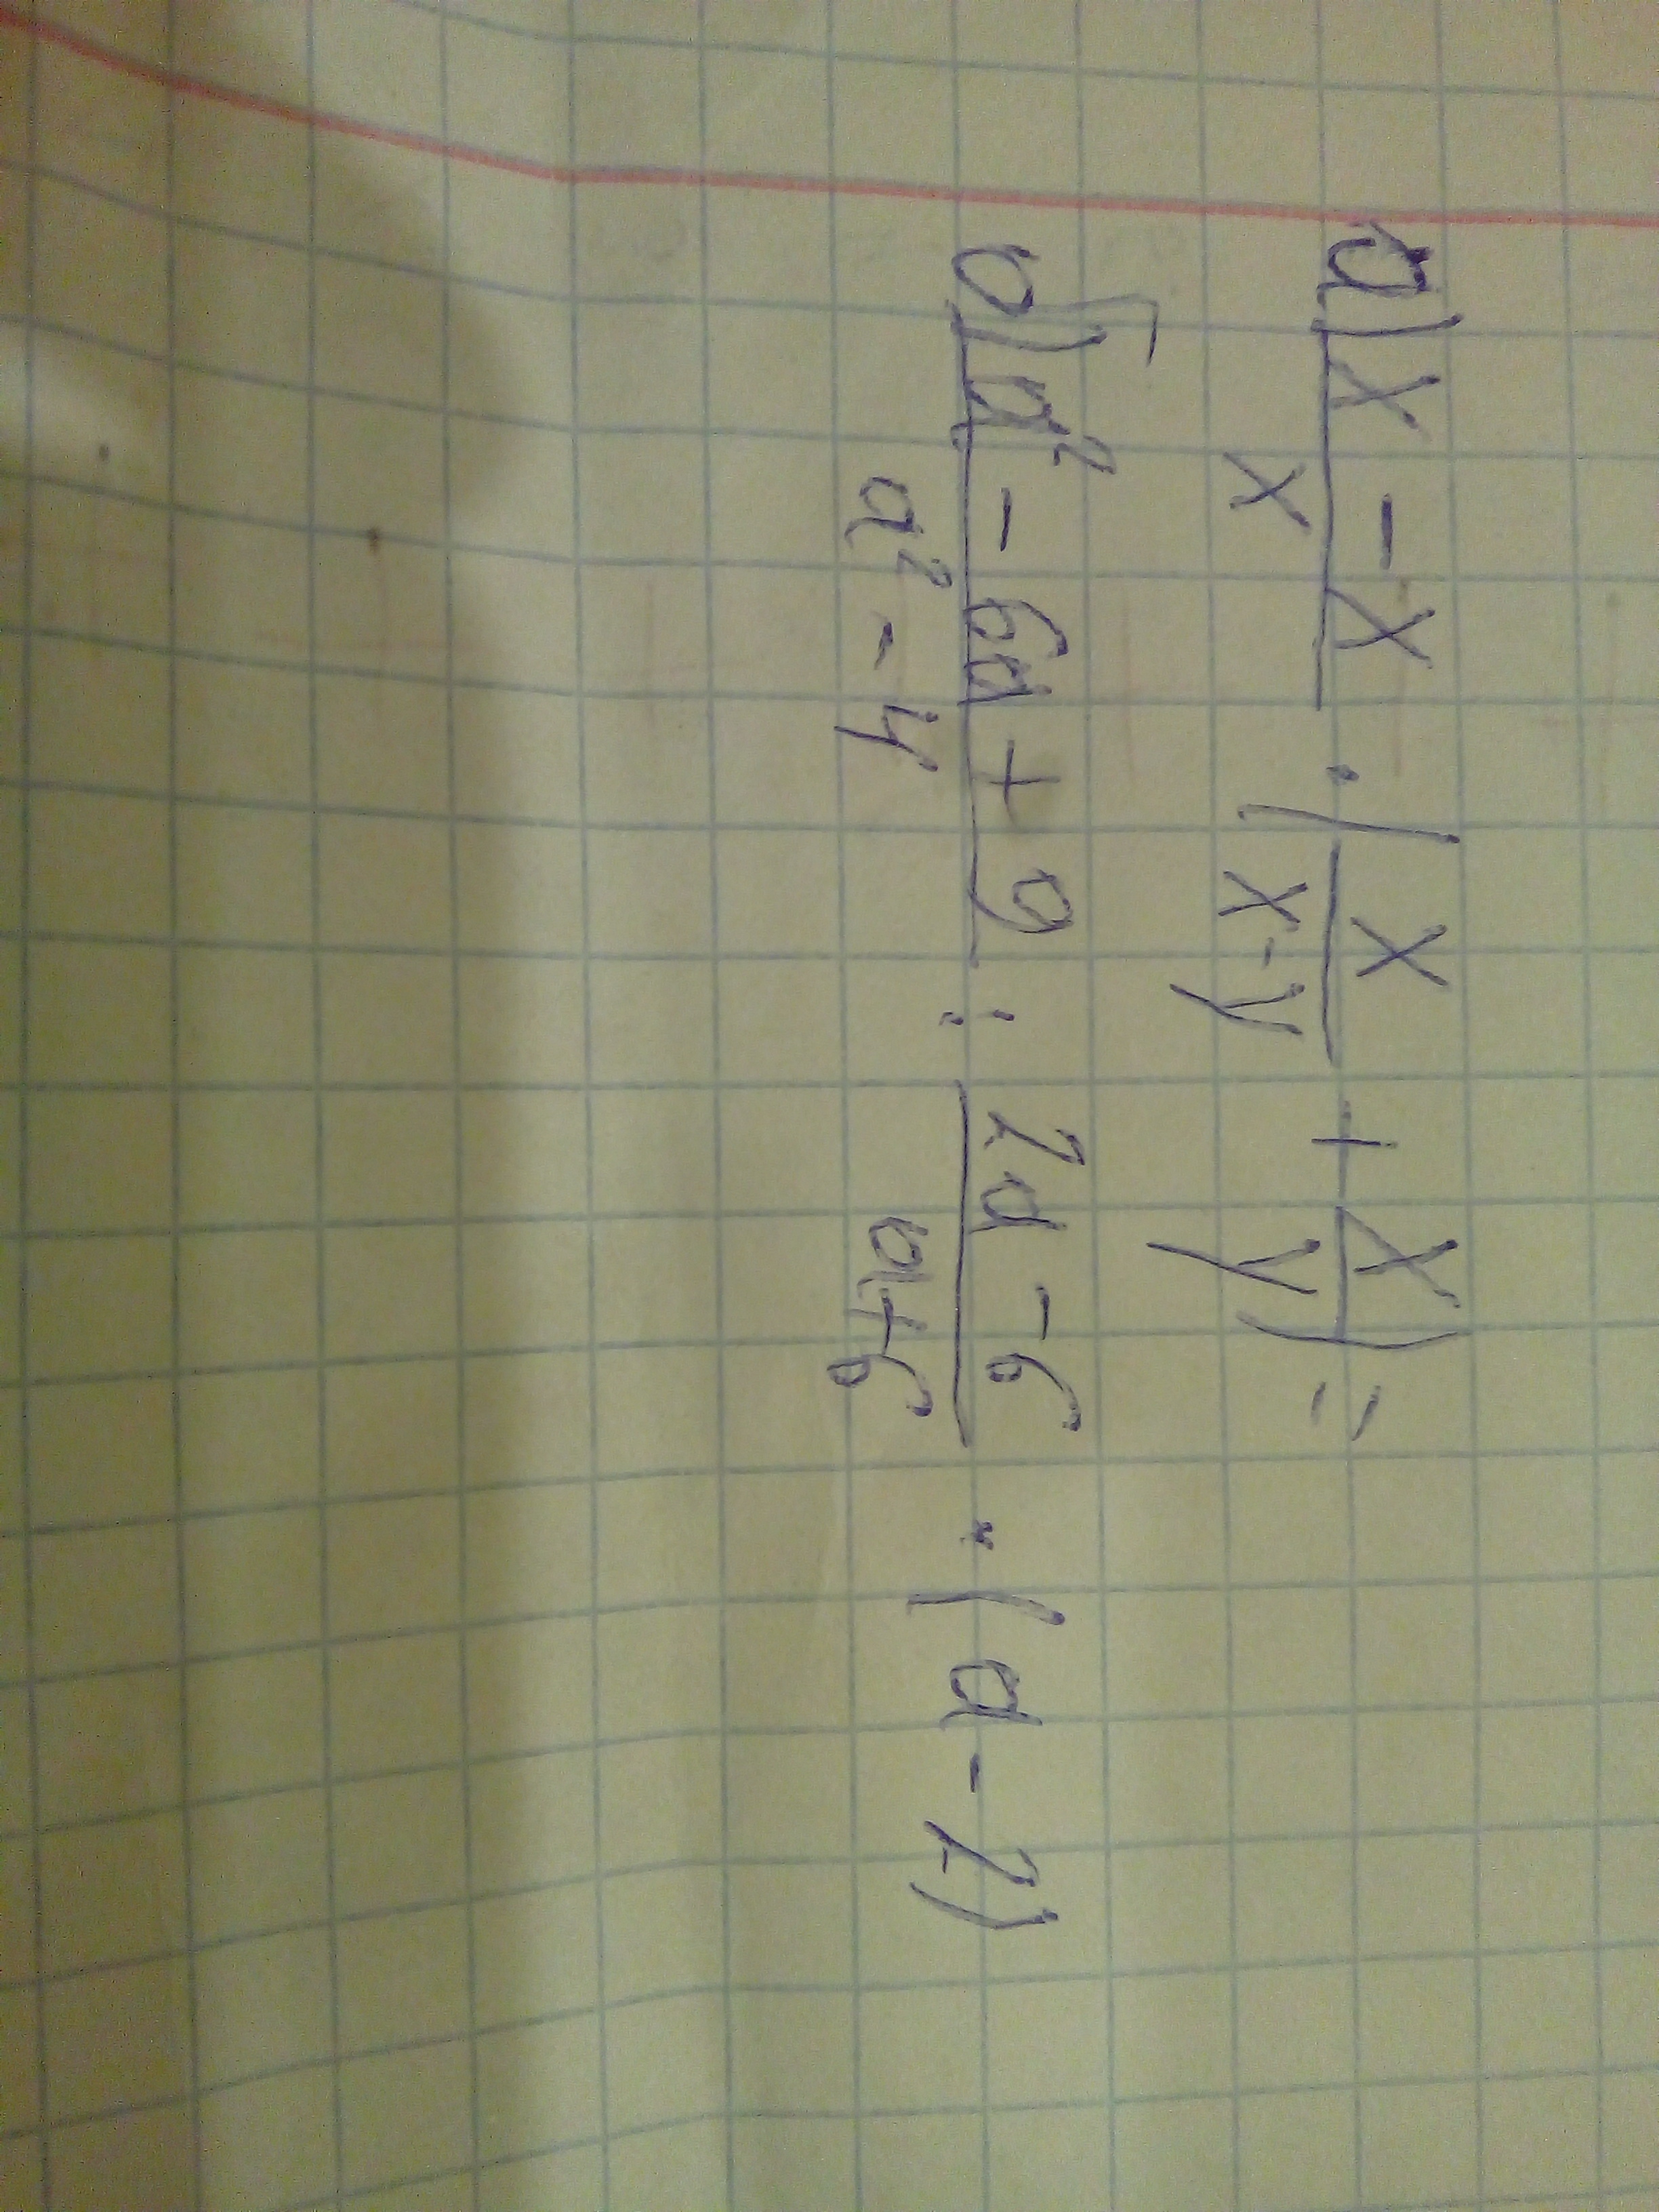 а) (x - x)/x · (x/(x-y) + x/y) =
б) (a² - 6a + 9)/(a² - 4) : (2a - 6)/(a+6) · (a - 2)